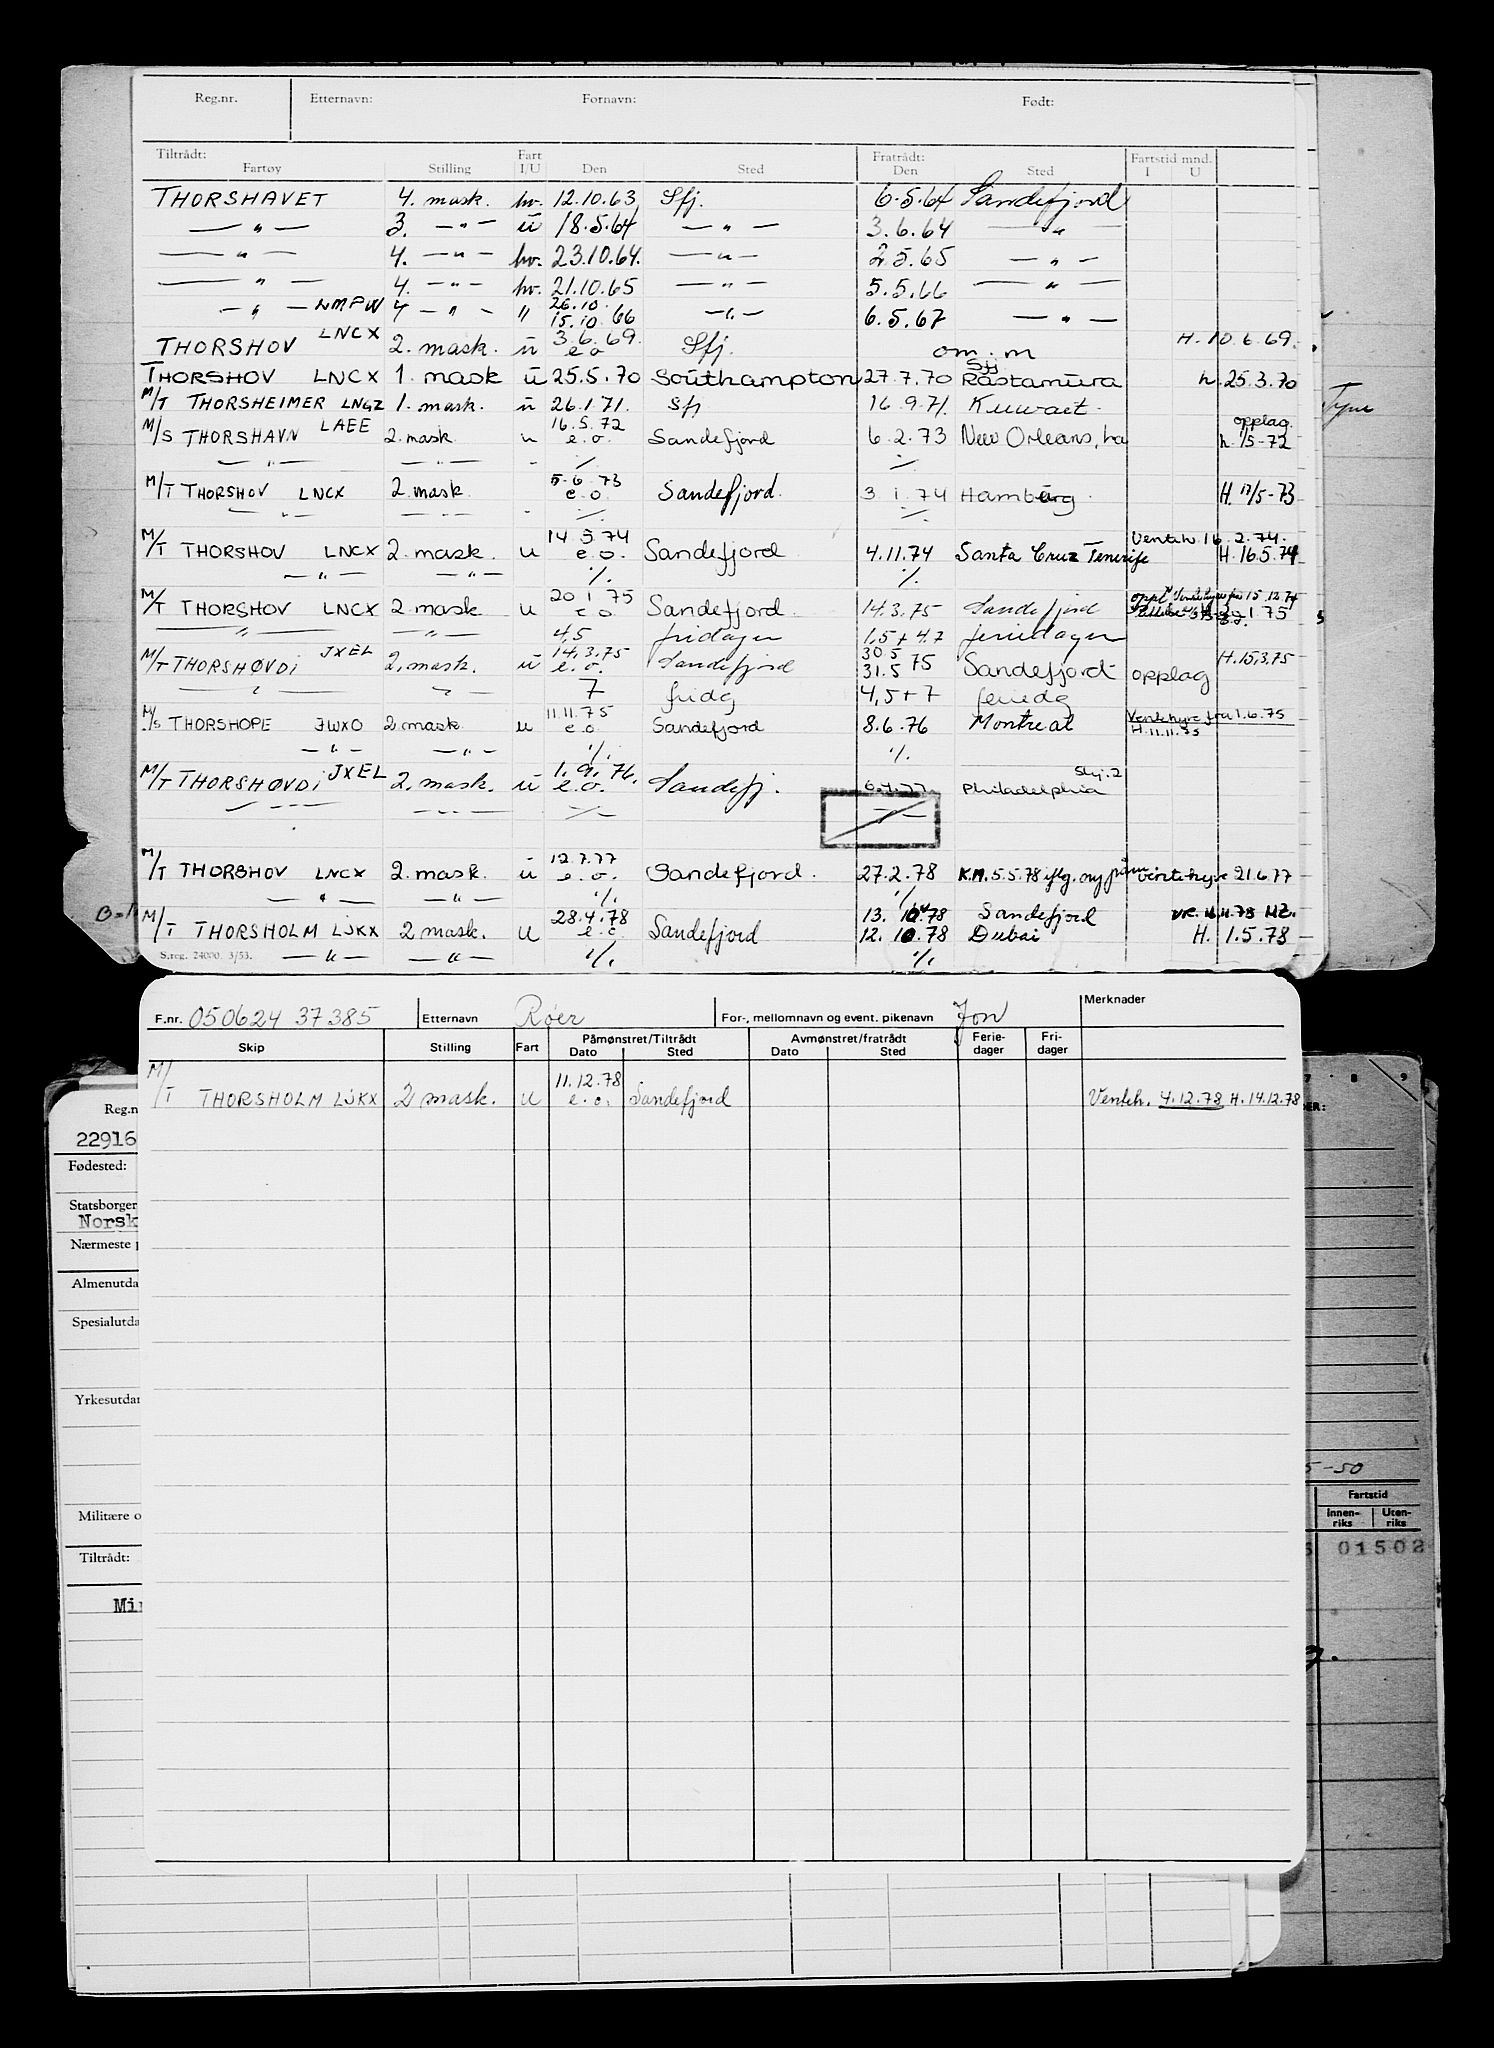 Reg.nr. Etternavn: Fornavn: Født:
Tiltrådt: Fratrådt: Fartstid mnd.
Fartøy Stilling Fart I/U Den Sted Den Sted I U
THORSHAVET 4. mask. hv. 12.10.63 Sfj. 6.5.64 Sandefjord
— " — 3. — " — u 18.5.64 — " — 3.6.64 — " —
— " — 4. — " — hv. 23.10.64. — " — 2.5.65 — " —
— " — 4. — " — hv. 21.10.65 — " — 5.5.66 — " —
26.10.
— " — LMPW 4 — " — " 15.10.66 — " — 6.5.67 — " —
LNCX 3.6.69. H. 10.6.69.
THORSHOV 2. mask. u e.o Sfj. om. m
Sfj
THORSHOV LNCX 1. mask u 25.5.70 Southampton 27.7.70 Rastamura h. 25.3.70
M/T THORSHEIMER LNGZ 1. mask. u 26.1.71. Sfj 16.9.71. Kuwait. Tyne
LAEE 16.5.72 opplag.
M/S THORSHAVN 2. mask u e.o. Sandefjord 6.2.73 New Orleans, La h. 1/5-72
— " — — " — - ./. ./.
5.6.73
M/T THORSHOV LNCX 2. mask. e.o. Sandefjord. 3.1.74 Hamburg. H. 17/5-73
— " — — " — - ./. ./.
14.5.74 Venteh. 16.2.74.
M/T THORSHOV LNCX 2. mask. u e.o. Sandefjord 4.11.74 Santa Cruz Tenerife H. 16.5.74
— " — — " — ./. ./.
20.1.75 Ventehyre fra 15.12.74
M/T THORSHOV LNCX 2. mask u e.o. Sandefjord. 14.3.75 Sandefjord 1.75
— " — — " — 4,5 fridager 1,5 + 4.7 feriedager
JXEL 14.3.75 30.5 H. 15.3.75
M/T THORSHØVDI 2. mask. u e.o. Sandefjord 31.5 75 Sandefjord opplag
— " — — " — 7 fridg 4,5 + 7 feriedg
11.11.75 Ventehyre fra 1.6.75
M/S THORSHOPE JWXO 2 mask. u e.o. Sandefjord 8.6.76 Montreal H. 11.11.75
— " — — " — ./. ./.
JXEL 1.9.76. Skj. 2
M/T THORSHØVDI 2. mask. u e.o. Sandefj. 6.4.77 Philadelphia
— " — — " — ./. — " —
12.7.77
M/T THORSHOV LNCX 2. mask. u e.o. Sandefjord. 27.2.78 K.M. 5.5.78 iflg. ny Ventehyre 21.6.77
— " — — " — ./. ./.
28.4.78 13. 10.78 Sandefjord
M/T THORSHOLM LJKX 2 mask. u e.o. Sandefjord 12. 10.78 Dubai H. 1.5.78
S.reg. 24000. 3/53. — " — — " — ./. ./.
F.nr. 050624 37385 Etternavn Røer For-, mellomnavn og event. pikenavn Jon Merknader
Skip Stilling Fart Påmønstret/Tiltrådt Avmønstret/fratrådt Ferie-dager Fri-dager
Dato Sted Dato Sted
11.12.78
M/T THORSHOLM LJKX 2 mask. u e.o. Sandefjord Venteh. 4.12.78 H. 14.12.78
Reg.n
22916
Fødested:
Statsborger
Norsk
Nærmeste p
Almenutda
Spesialutda
Yrkesutdan
Militære o
Tiltrådt:
Mi
7 · 8 · 9
5-50
Fartstid
Innen-riks Uten-riks
01502